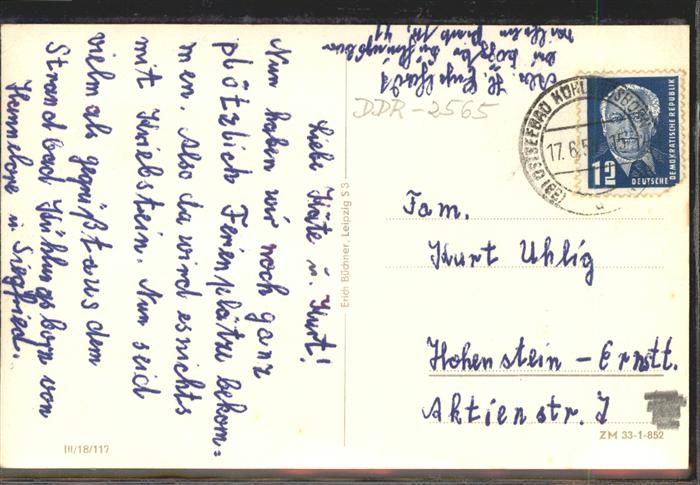 Liebe Käte u. Kurt!
Nun haben wir noch ganz
plötzlich Ferienplätze bekom=
men. Also da wird es nichts
mit Kriebstein. Nun seid
vielmals gegrüßt aus dem
Strandbad Kühlungsborn von
Hannelore u. Siegfried.
Abs. H.
DDR-2565
Erich Büchner, Leipzig S 3
(3a) OSTSEEBAD KÜHLUNGSBORN
17.6.5
12
DEUTSCHE DEMOKRATISCHE REPUBLIK
Fam.
Kurt Uhlig
Hohenstein - Ernstt.
Aktienstr. 7
III/18/117
ZM 33-1-852